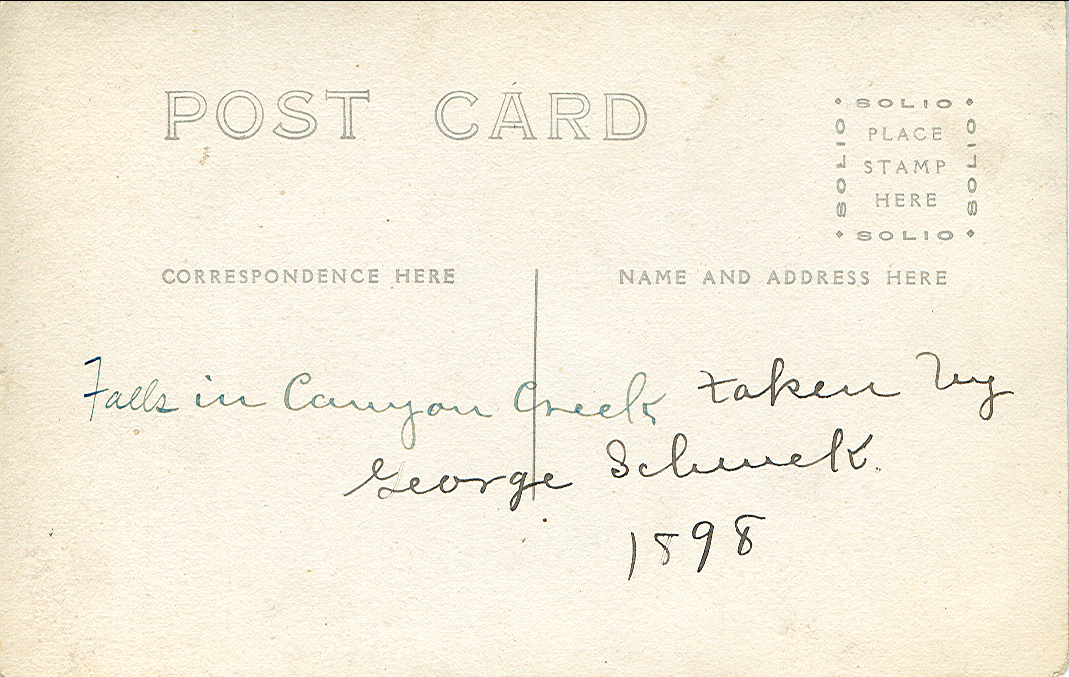 POST CARD
SOLIO
SOLIO
PLACE
STAMP
HERE
SOLIO
SOLIO
CORRESPONDENCE HERE
NAME AND ADDRESS HERE
Falls in Canyon Creek taken by
George
1898